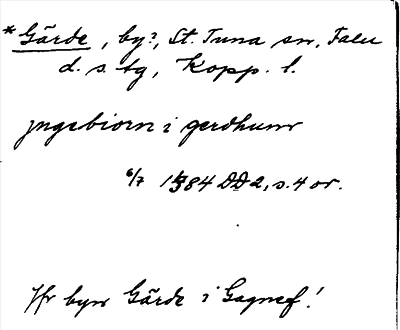 *Gärde, by?, St. Tuna sn, Falu
d. s. tg, Kopp. l.
jngebiorn i gerdhum
6/7 1384 DD 2, s. 4 or.
Jfr byn Gärde i Gagnef!